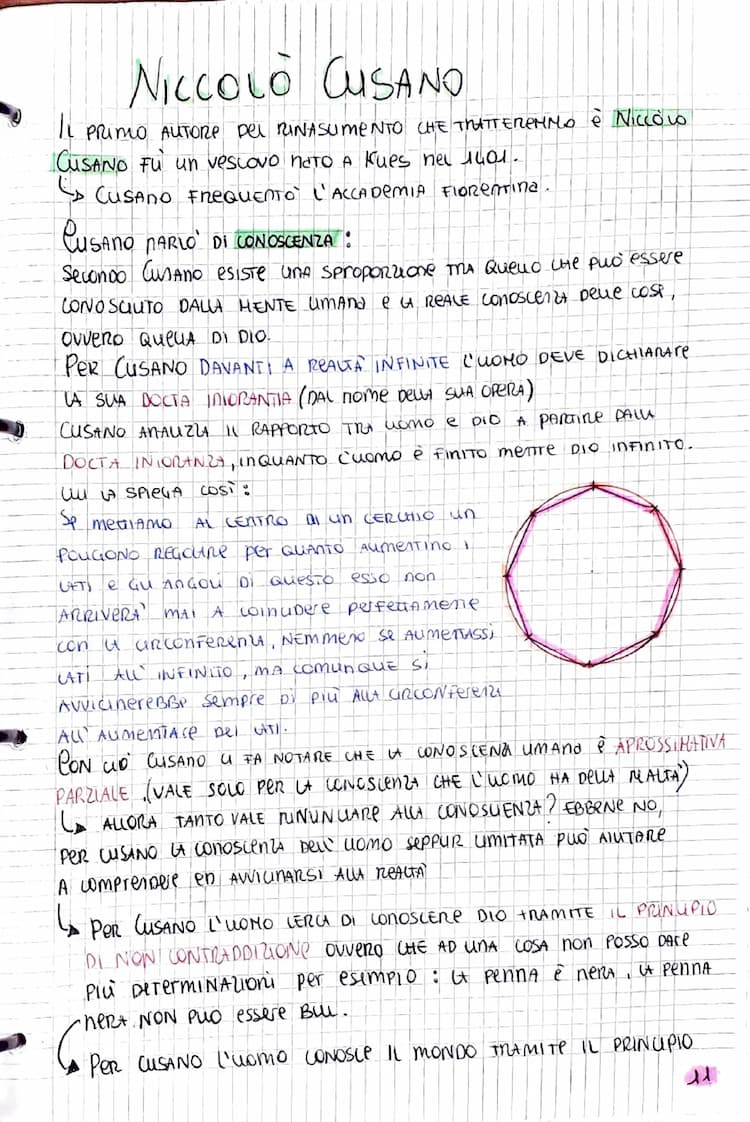 NICCOLÒ CUSANO
IL PRIMO AUTORE DEL RINASCIMENTO CHE TRATTEREMMO è NICCÒLO
CUSANO FÙ UN VESCOVO NATO A KUES NEL 1401.
↳ CUSANO FREQUENTÒ L'ACCADEMIA FIORENTINA.
CUSANO PARLÒ DI CONOSCENZA:
SECONDO CUSANO ESISTE UNA SPROPORZIONE TRA QUELLO CHE PUÒ ESSERE
CONOSCIUTO DALLA MENTE UMANA E LA REALE CONOSCENZA DELLE COSE,
OVVERO QUELLA DI DIO.
PER CUSANO DAVANTI A REALTÀ INFINITE L'UOMO DEVE DICHIARARE
LA SUA DOCTA INIORANTIA (DAL NOME DELLA SUA OPERA)
CUSANO ANALIZZA IL RAPPORTO TRA UOMO E DIO A PARTIRE DALLA
DOCTA INIORANZA, INQUANTO L'UOMO È FINITO MENTRE DIO INFINITO.
LUI LA SPIEGA COSÌ:
SE METTIAMO AL CENTRO DI UN CERCHIO UN
POLIGONO REGOLARE PER QUANTO AUMENTINO I
LATI E GLI ANGOLI DI QUESTO ESSO NON
ARRIVERÀ MAI A COINCIDERE PERFETTAMENTE
CON LA CIRCONFERENZA, NEMMENO SE AUMETASSI
LATI ALL'INFINITO, MA COMUNQUE SI
AVVICINEREBBE SEMPRE DI PIÙ ALLA CIRCONFERENZA
ALL'AUMENTARE DEI LATI.
CON CIÒ CUSANO CI FA NOTARE CHE LA CONOSCENZA UMANA È APROSSIMATIVA
PARZIALE, (VALE SOLO PER LA CONOSCENZA CHE L'UOMO HA DELLA REALTÀ)
↳ ALLORA TANTO VALE RINUNCIARE ALLA CONOSCENZA? EBBENE NO,
PER CUSANO LA CONOSCENZA DELL'UOMO SEPPUR LIMITATA PUÒ AIUTARE
A COMPRENDERE ED AVVICINARSI ALLA REALTÀ
↳ PER CUSANO L'UOMO CERCA DI CONOSCERE DIO TRAMITE IL PRINCIPIO
DI NON CONTRADDIZIONE OVVERO CHE AD UNA COSA NON POSSO DARE
PIÙ DETERMINAZIONI PER ESEMPIO: LA PENNA È NERA, LA PENNA
NERA NON PUÒ ESSERE BLU.
↳ PER CUSANO L'UOMO CONOSCE IL MONDO TRAMITE IL PRINCIPIO
11